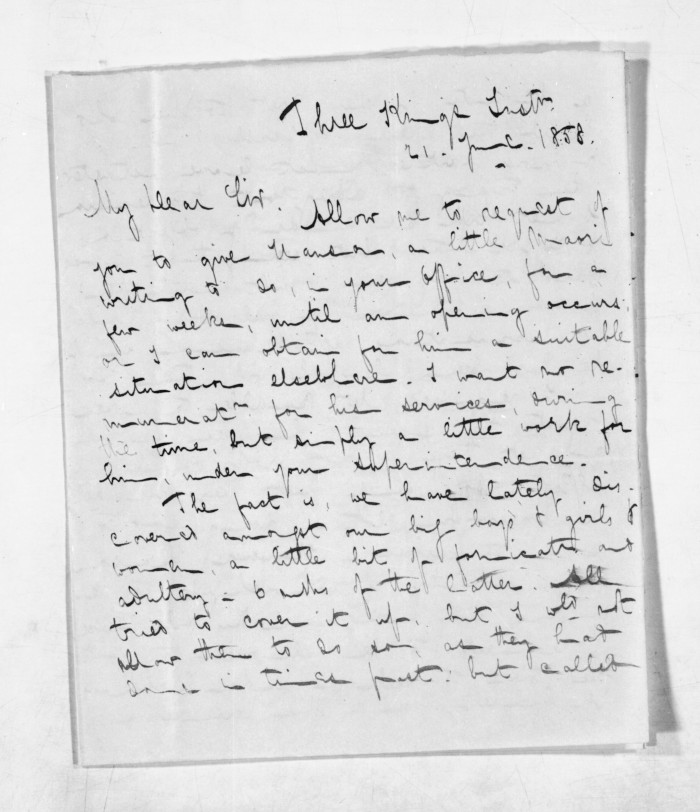 Three Kings Instn.
21. June. 1858.
My Dear Sir.
Allow me to request of
you to give a little Maori
writing to do, in your office, for a
few weeks, until an opening occurs,
or I can obtain for him a suitable
situation elsewhere. I want no re-
muneratn for his services, during
the time, but simply a little work for
him, under your superintendence.
The fact is, we have lately dis-
covered amongst our big boys & girls &
women, a little bit of fornicatn and
adultery - of the latter. All
tried to cover it up, but I wld not
allow them to do so, as they had
done in times past: but called